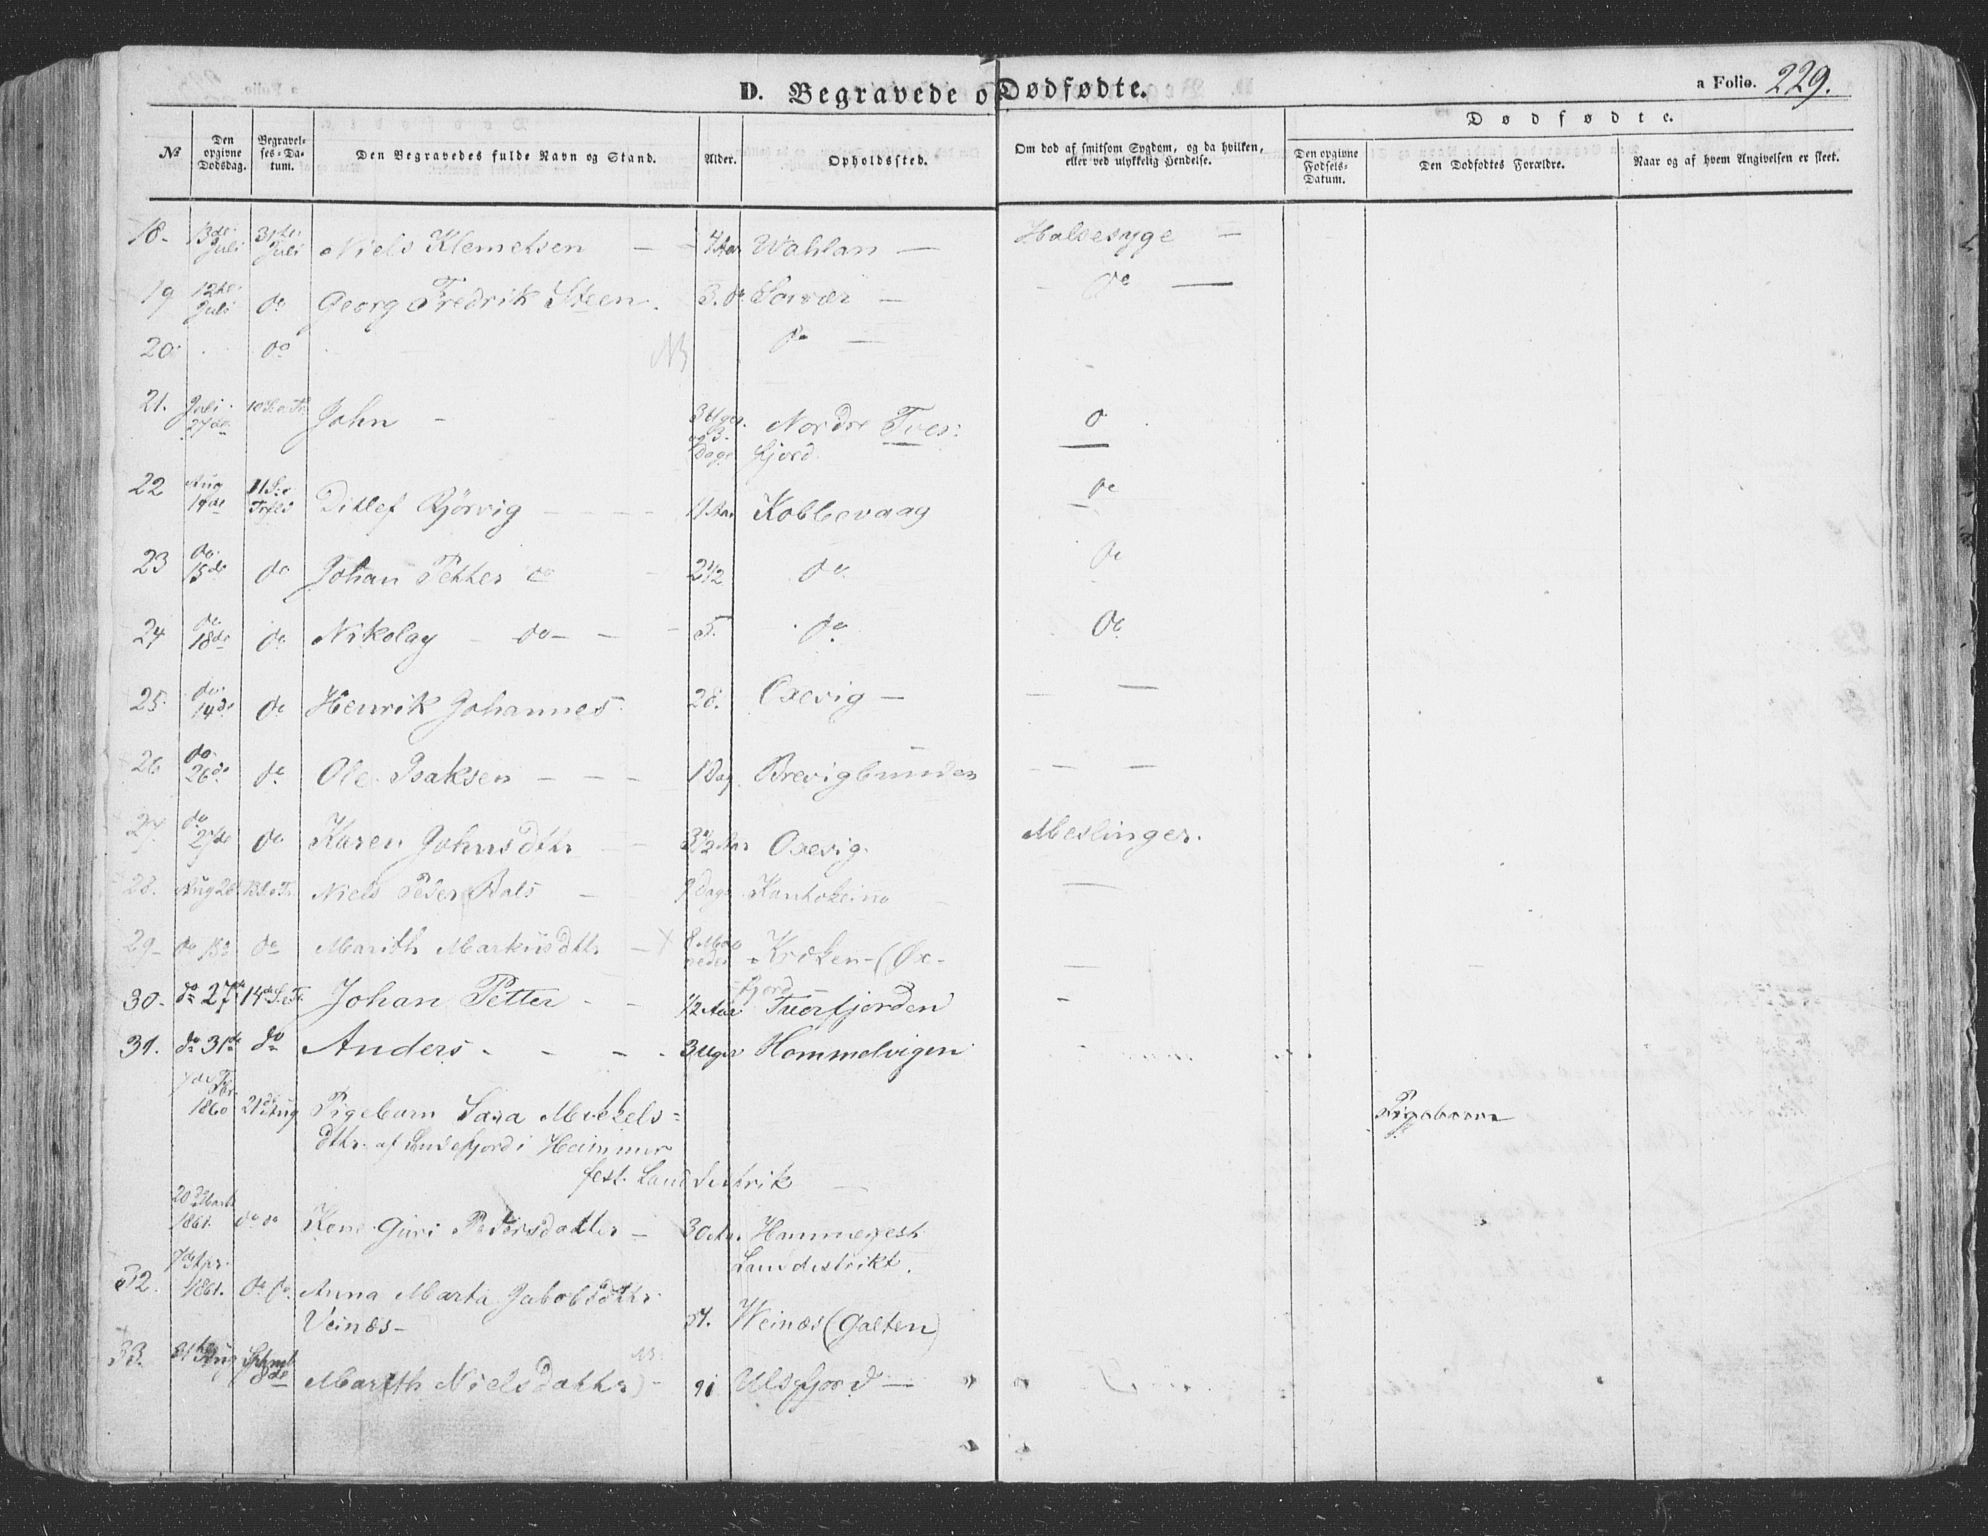 D. Begravede o Dødfødte.
a Folio. 229.
No
Den opgivne Dødsdag.
Begravelses-Datum.
Den Begravedes fulde Navn og Stand.
Alder.
Opholdssted.
Om død af smitsom Sygdom, og da hvilken, eller ved ulykkelig Hendelse.
Dødfødte.
Den opgivne Fødsels-Datum.
Den Dødfødtes Forældre.
Naar og af hvem Angivelsen er skeet.
18. 13de Juli 31te Juli Niels Klemetsen 4 Aar Wahlan Halsesyge
19 12te Juli do Georg Fredrik Steen 3. do Sørvær do
20 do NB do
21. Juli 27de 10 S. e. Tr. John 3 Uger og 3 Dage Nordre Tves-
fjord. do
22 Aug 14de 11 S. e. Ditlef Rjørvig 11 Aar Kobbevaag do
23 do 15de do Johan Petter do 2 1/2 do do
24 do 18de do Nikolay do 5. do do
25. do 14de do Henrik Johannes 28. Oxevig
26 do 26de do Ole Isaksen 1 Dag Brevigbunden
27. do 27de do Karen Johnsdtr 3 1/2 Aar Oxevig Meslinger.
28. Aug 28 13 S. e. Tr. Niels Peder Bals 9 Dage Kautokeino
29 do do Marith Markusdtr 8 Maaneder Kroken (Øx-
fjord
30. do 27de 14de S. e. Tr. Johan Petter 1/2 Aar Tverfjorden
31. do 31de do Anders 3 Uger Hommelvigen
1860 21de Aug Pigebarn Sara Mikkels- Pigebarn
dtr. af i Hammer
fest. Landdistrik
20de Marts 1861. do do Kone Guri Pedersdatter 30 Aar Hammerfest
Landdistrikt.
32. 7de Apr. 1861. do do Anna Marta Jakobsdtr
Veinæs 51. Weinæs (Galten)
33. 21de Aug Septemb 8de Marith Nielsdatter 91 Ulsfjord